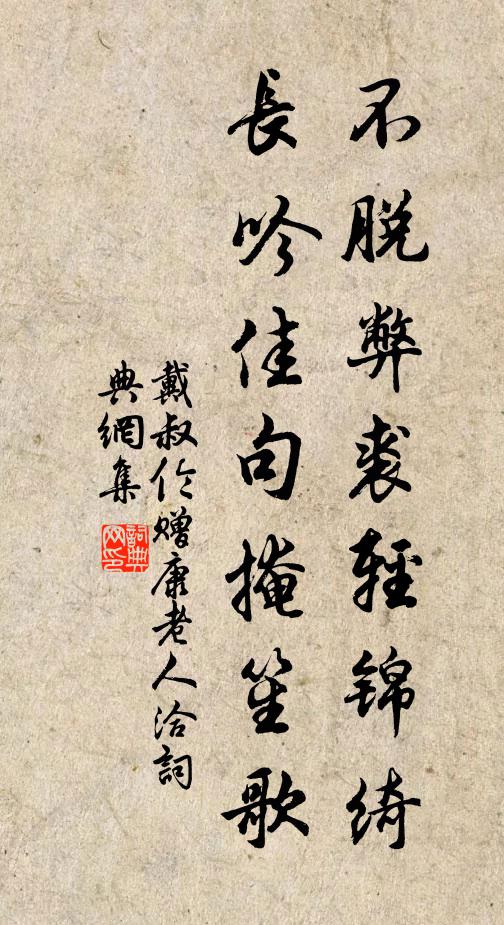 不脱弊裘輕錦綺
長吟佳句掩笙歌
戴叔伦赠康老人洽詞
典網集
詞典网印